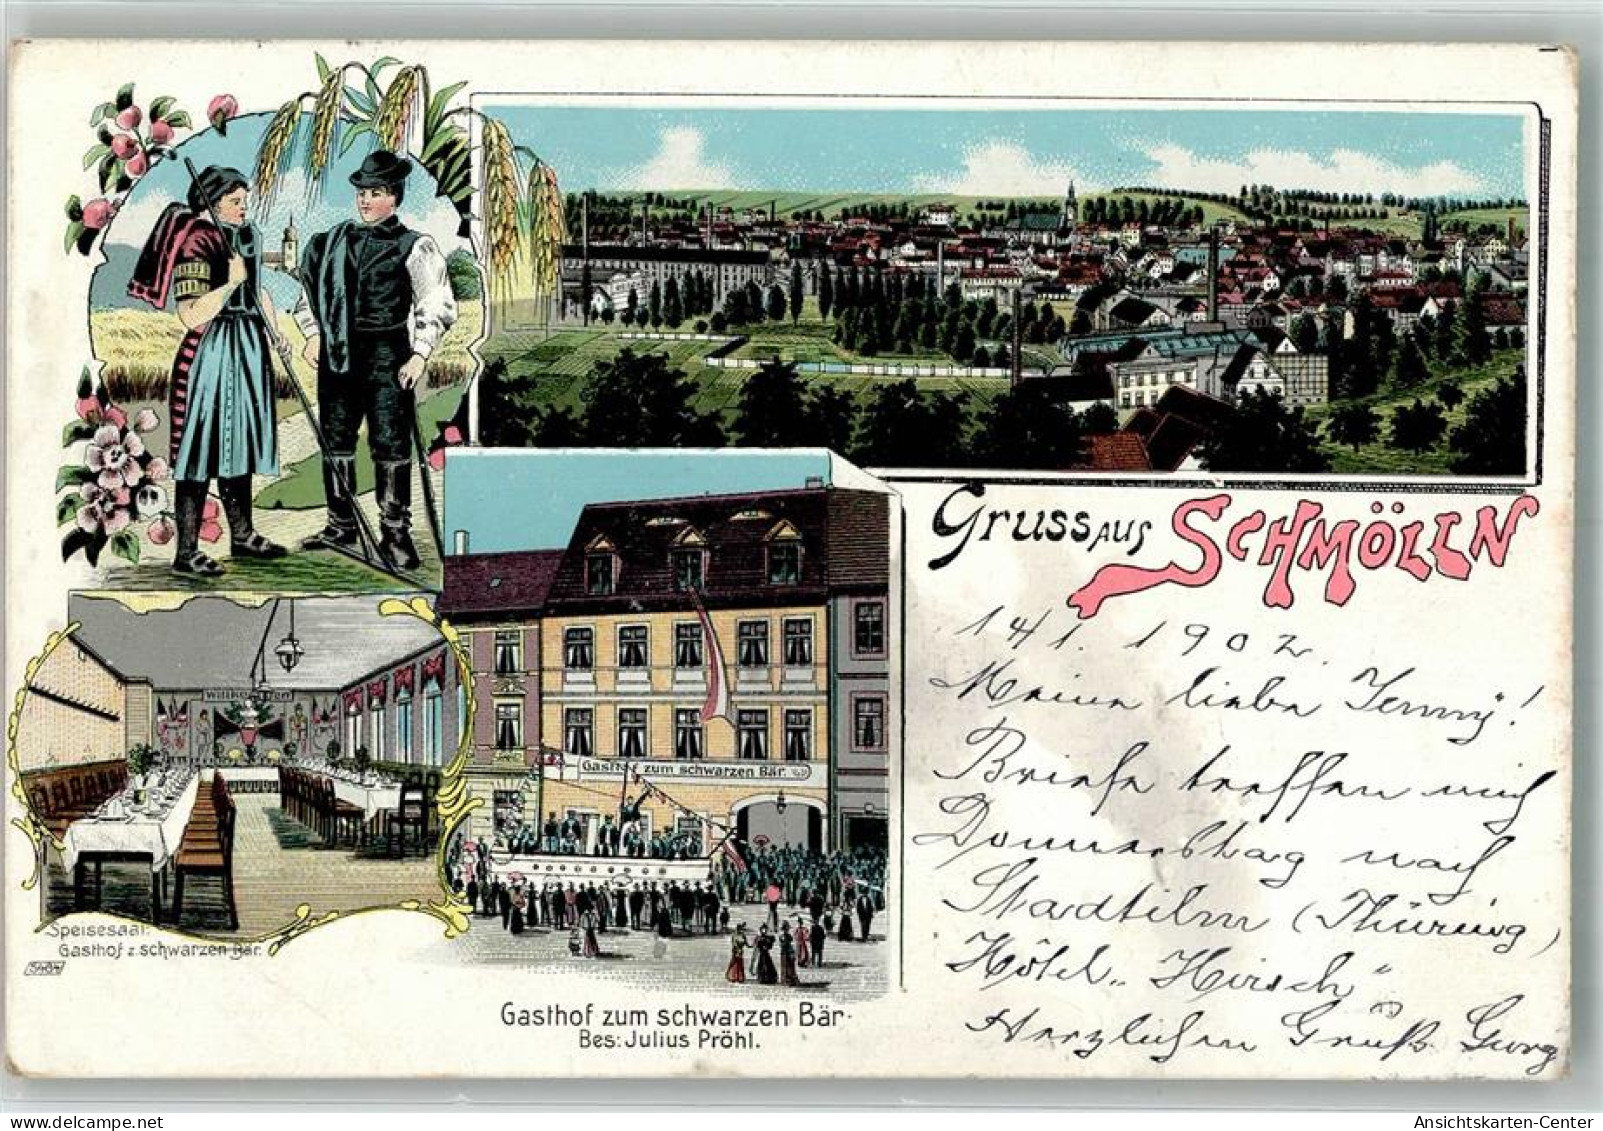 Gruss aus SCHMÖLLN
14/1. 1902.
Meine liebe Jenny!
Briefe treffen mich
Donnerstag nach
Stadtilm (Thüring)
Hôtel „Hirsch“
Herzlichen Gruß Georg
Willkommen
Gasthof zum schwarzen Bär.
Speisesaal:
Gasthof z. schwarzen Bär.
5404
Gasthof zum schwarzen Bär.
Bes: Julius Pröhl.
oldthing
Ansichtskarten-Center